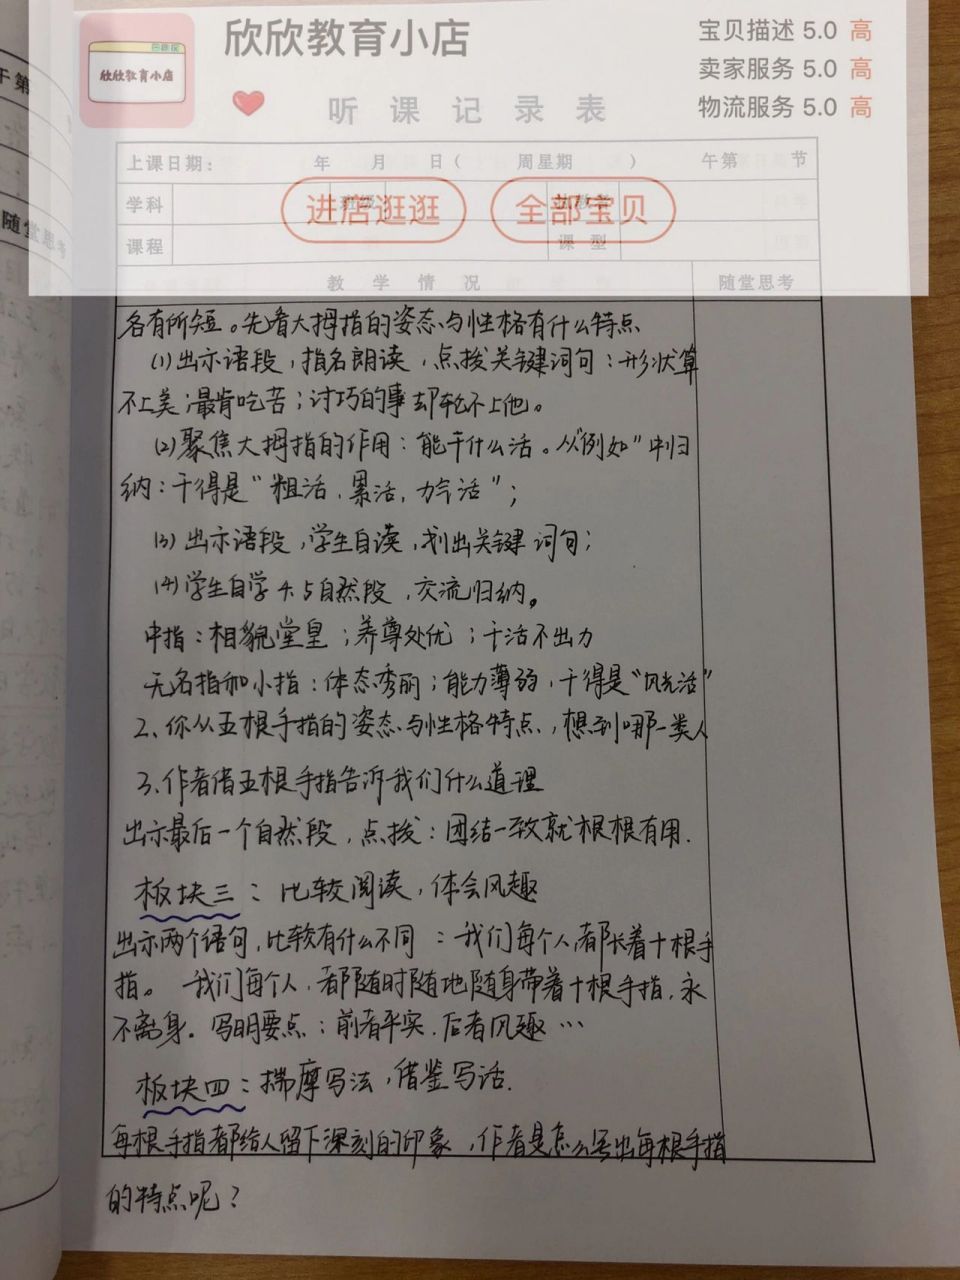 欣欣教育小店
欣欣教育小店
宝贝描述 5.0 高
卖家服务 5.0 高
物流服务 5.0 高
听课记录表
上课日期: 年 月 日( 周星期 ) 午第 节
学科 班级
进店逛逛 全部宝贝
课程 课型
教学情况 随堂思考
午第
随堂思考
各有所短。先看大拇指的姿态与性格有什么特点
(1)出示语段,指名朗读,点拨关键词句:形状算
不上美;最肯吃苦;讨巧的事却轮不上他。
(2)聚焦大拇指的作用:能干什么活。从“例如”中归
纳:干得是“粗活,累活,力气活”;
(3)出示语段,学生自读,划出关键词句;
(4)学生自学4.5自然段,交流归纳。
中指:相貌堂皇;养尊处优;干活不出力
无名指和小指:体态秀丽;能力薄弱,干得是“风光活”
2、你从五根手指的姿态与性格特点,想到哪一类人
3、作者借五根手指告诉我们什么道理
出示最后一个自然段,点拨:团结一致就根根有用.
板块三:比较阅读,体会风趣
出示两个语句,比较有什么不同:我们每个人,都长着十根手
指。我们每个人,都随时随地随身带着十根手指,永
不离身.写明要点:前者平实.后者风趣…
板块四:揣摩写法,借鉴写话.
每根手指都给人留下深刻的印象,作者是怎么写出每根手指
的特点呢?